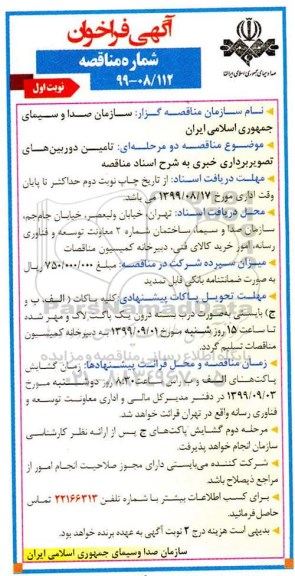 آگهی فراخوان
شماره مناقصه
۹۹-۰۸/۱۱۲
صدا و سیمای جمهوری اسلامی ایران
نوبت اول
نـام سـازمان مناقصـه گـزار: سـازمان صـدا و سـیمای
جمهوری اسلامی ایران
موضـوع مناقصـه دو مرحلـه‌ای: تامیـن دوربین‌هـای
تصویربرداری خبری به شرح اسناد مناقصه
مهلـت دریافـت اسـناد: از تاریخ چـاپ نوبت دوم حداکثـر تا پایان
وقت اداری مورخ ۱۳۹۹/۰۸/۱۷ می باشد.
محـل دریافـت اسـناد: تهـران، خیابان ولیعصـر، خیابـان جام‌جم،
سازمان صدا و سیما، ساختمان شماره ۲ معاونت توسعه و فناوری
رسانه، امور خرید کالای فنی، دبیرخانه کمیسیون مناقصات
میـزان سـپرده شـرکت در مناقصـه: مبلـغ ۷۵۰/۰۰۰/۰۰۰ ریال
به صورت ضمانتنامه بانکی قابل تمدید
مهلـت تحویـل پـاکات پیشـنهادی کلیه پـاکات ( الـف ب و
ج) بایستی به‌صورت دربسته در درون یک پاکت لاک و مهر شده
تا ساعت ۱۵ روز شنبه مورخ ۱۳۹۹/۰۹/۰۱ به دبیرخانه کمیسیون
مناقصات تسلیم گردد.
زمـان مناقصـه و محـل قرائـت پیشـنهادها: زمـان گشـایش
پاکت‌های الـف و ب راس سـاعت ۸:۳۰ روز دوشـنبه مـورخ
۱۳۹۹/۰۹/۰۳ در دفتـر مدیـر کل مالـی و اداری معاونـت توسـعه و
فناوری رسانه واقع در تهران قرائت خواهد شد.
مرحلـه دوم گشـایش پاکت‌هـای ج پـس از ارائـه نظـر کارشناسـی
سازمان انجام خواهد پذیرفت.
شـرکت کننـده می‌بایسـتی دارای مجـوز صلاحیـت انجـام امـور از
مراجع ذیصلاح باشد.
بـرای کسـب اطلاعـات بیشـتر بـا شـماره تلفـن ۲۲۱۶۶۳۱۳ تماس
حاصل‌فرمائید.
بدیهی است هزینه درج ۲ نوبت آگهی به عهده برنده خواهد بود.
سازمان صدا وسیمای جمهوری اسلامی ایران